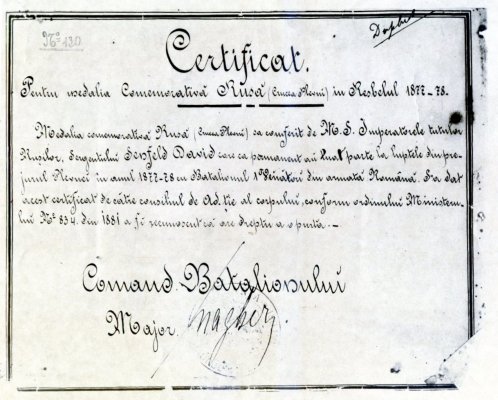 No 130
Duplicat
Certificat.
Pentru medalia Comemorativă Rusă (Crucea Plevni) in Resbelul 1877-78.
Medalia comemorativa Rusă (Crucea Plevni) sa conferit de M. S. Imperatorele tutulor
Rușilor, Sergentului Senfeld David care ca permanent au luat parte la luptele din pre-
jurul Plevnei in anul 1877-78 cu Batalionul 1º Vênători din armata Română. I sa dat
acest certificat de către consiliul de Ad-ție al corpului, conform ordinului Ministeru-
lui No 834 din 1881 a fi recunoscut că are dreptu a o purta. —
Comand Batalionului
Major